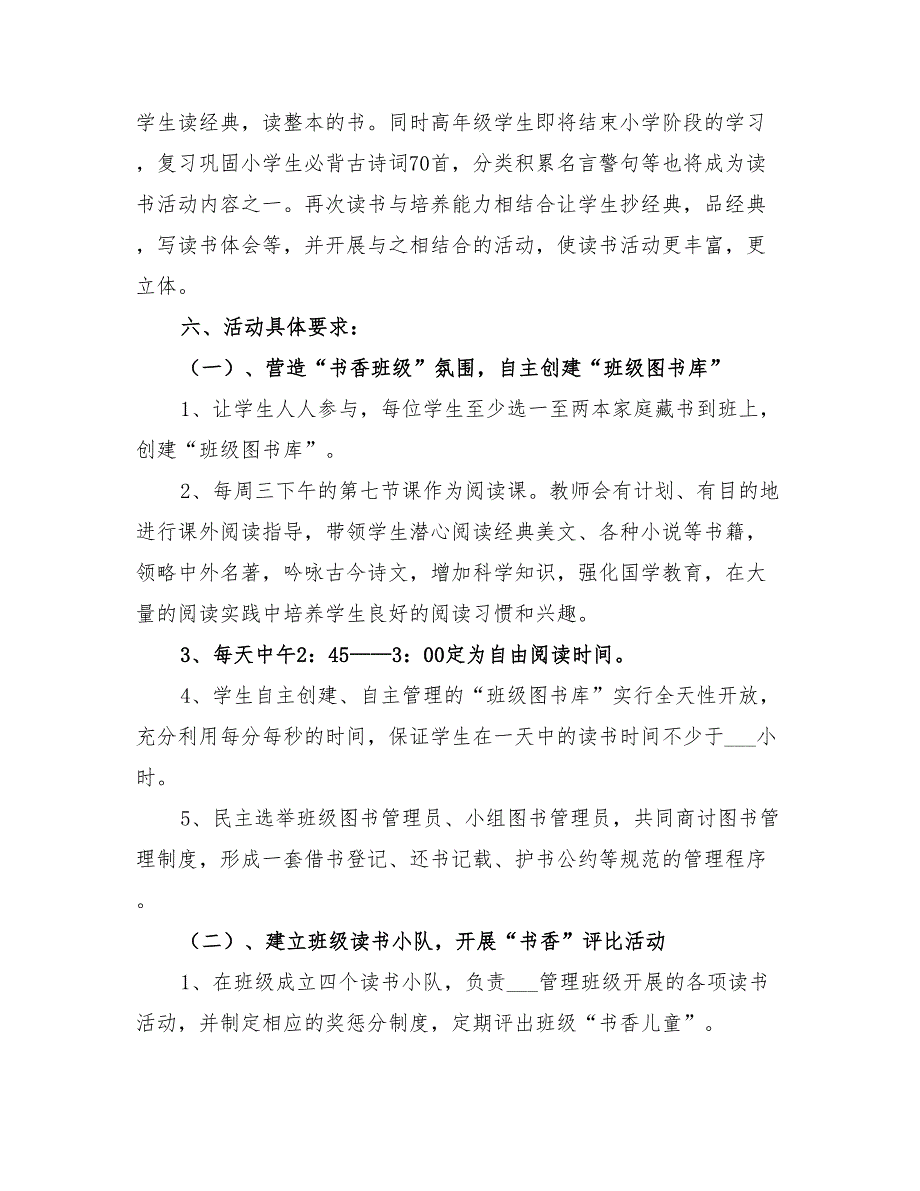 学生读经典，读整本的书。同时高年级学生即将结束小学阶段的学习
，复习巩固小学生必背古诗词70首，分类积累名言警句等也将成为读
书活动内容之一。再次读书与培养能力相结合让学生抄经典，品经典
，写读书体会等，并开展与之相结合的活动，使读书活动更丰富，更
立体。
六、活动具体要求：
（一）、营造“书香班级”氛围，自主创建“班级图书库”
1、让学生人人参与，每位学生至少选一至两本家庭藏书到班上，
创建“班级图书库”。
2、每周三下午的第七节课作为阅读课。教师会有计划、有目的地
进行课外阅读指导，带领学生潜心阅读经典美文、各种小说等书籍，
领略中外名著，吟咏古今诗文，增加科学知识，强化国学教育，在大
量的阅读实践中培养学生良好的阅读习惯和兴趣。
3、每天中午2：45——3：00定为自由阅读时间。
4、学生自主创建、自主管理的“班级图书库”实行全天性开放，
充分利用每分每秒的时间，保证学生在一天中的读书时间不少于___小
时。
5、民主选举班级图书管理员、小组图书管理员，共同商讨图书管
理制度，形成一套借书登记、还书记载、护书公约等规范的管理程序
。
（二）、建立班级读书小队，开展“书香”评比活动
1、在班级成立四个读书小队，负责___管理班级开展的各项读书
活动，并制定相应的奖惩分制度，定期评出班级“书香儿童”。